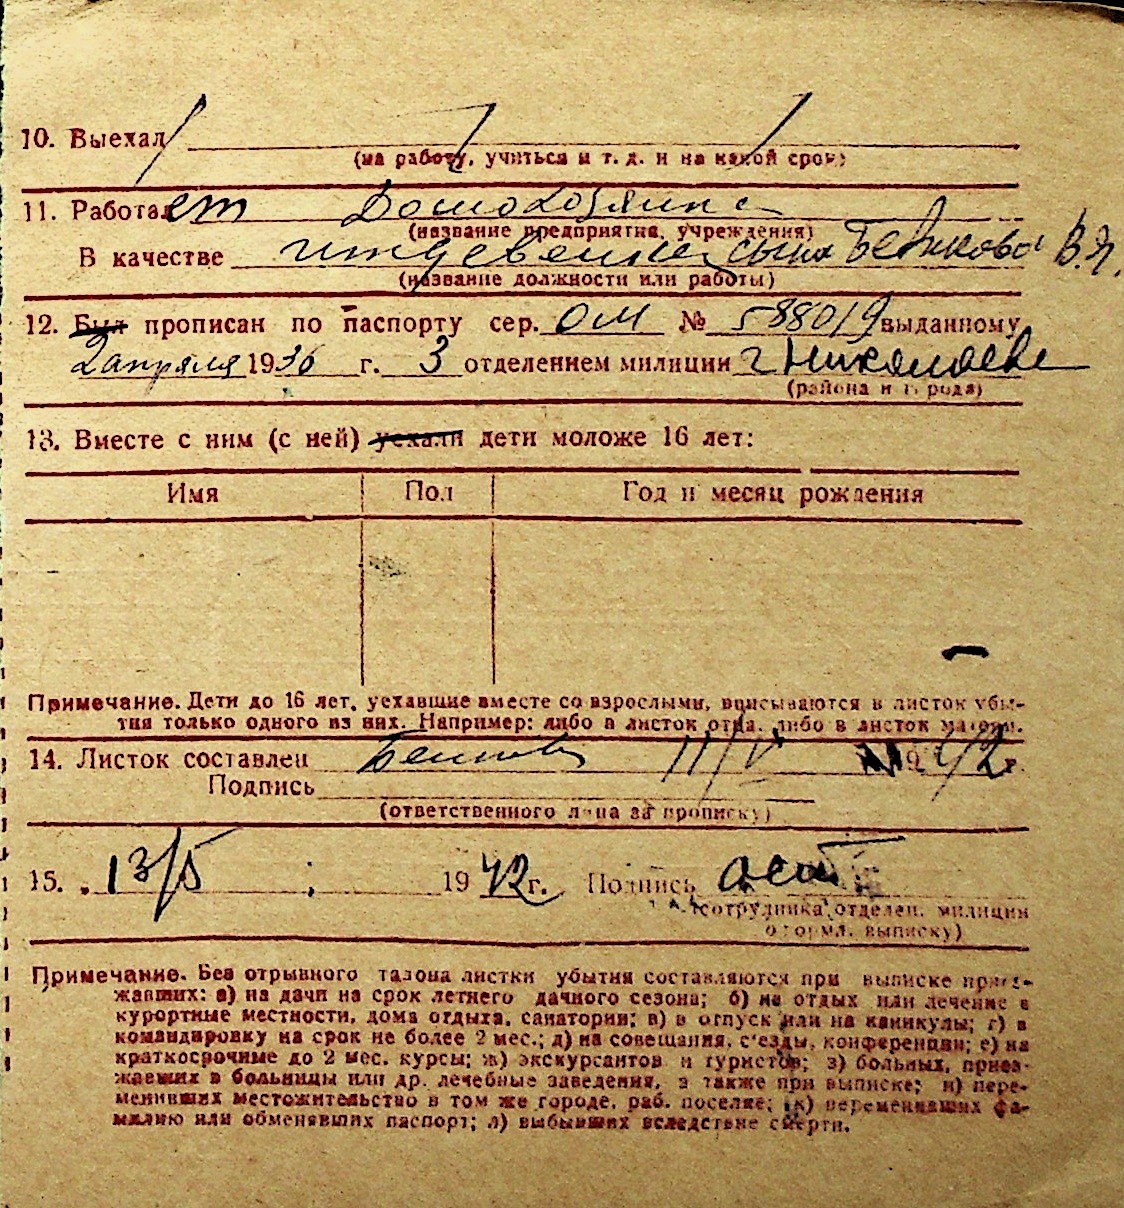 10. Выехал
(на работу, учиться и т. д. и на какой срок)
11. Работает Домохозяина
(название предприятия, учреждения)
В качестве иждевенка сына Беликова В.Я.
(название должности или работы)
12. Был прописан по паспорту сер. ОМ № 588019 выданному
2 апреля 1936 г. 3 отделением милиции г Николаеве
(района и города)
13. Вместе с ним (с ней) уехали дети моложе 16 лет:
Имя Пол Год и месяц рождения
Примечание. Дети до 16 лет, уехавшие вместе со взрослыми, вписываются в листок убы-
тия только одного из них. Например: либо в листок отца, либо в листок матери.
14. Листок составлен 11/V 1942 г.
Подпись
(ответственного лица за прописку)
15. 13/5 1942 г. Подпись
(сотрудника отделен. милиции
оформл. выписку)
Примечание. Без отрывного талона листки убытия составляются при выписке приез-
жавших: а) на дачи на срок летнего дачного сезона; б) на отдых или лечение в
курортные местности, дома отдыха, санатории; в) в отпуск или на каникулы; г) в
командировку на срок не более 2 мес.; д) на совещания, съезды, конференции; е) на
краткосрочные до 2 мес. курсы; ж) экскурсантов и туристов; з) больных, приез-
жавших в больницы или др. лечебные заведения, а также при выписке; и) пере-
менивших местожительство в том же городе, раб. поселке; к) переменивших фа-
милию или обменявших паспорт; л) выбывших вследствие смерти.